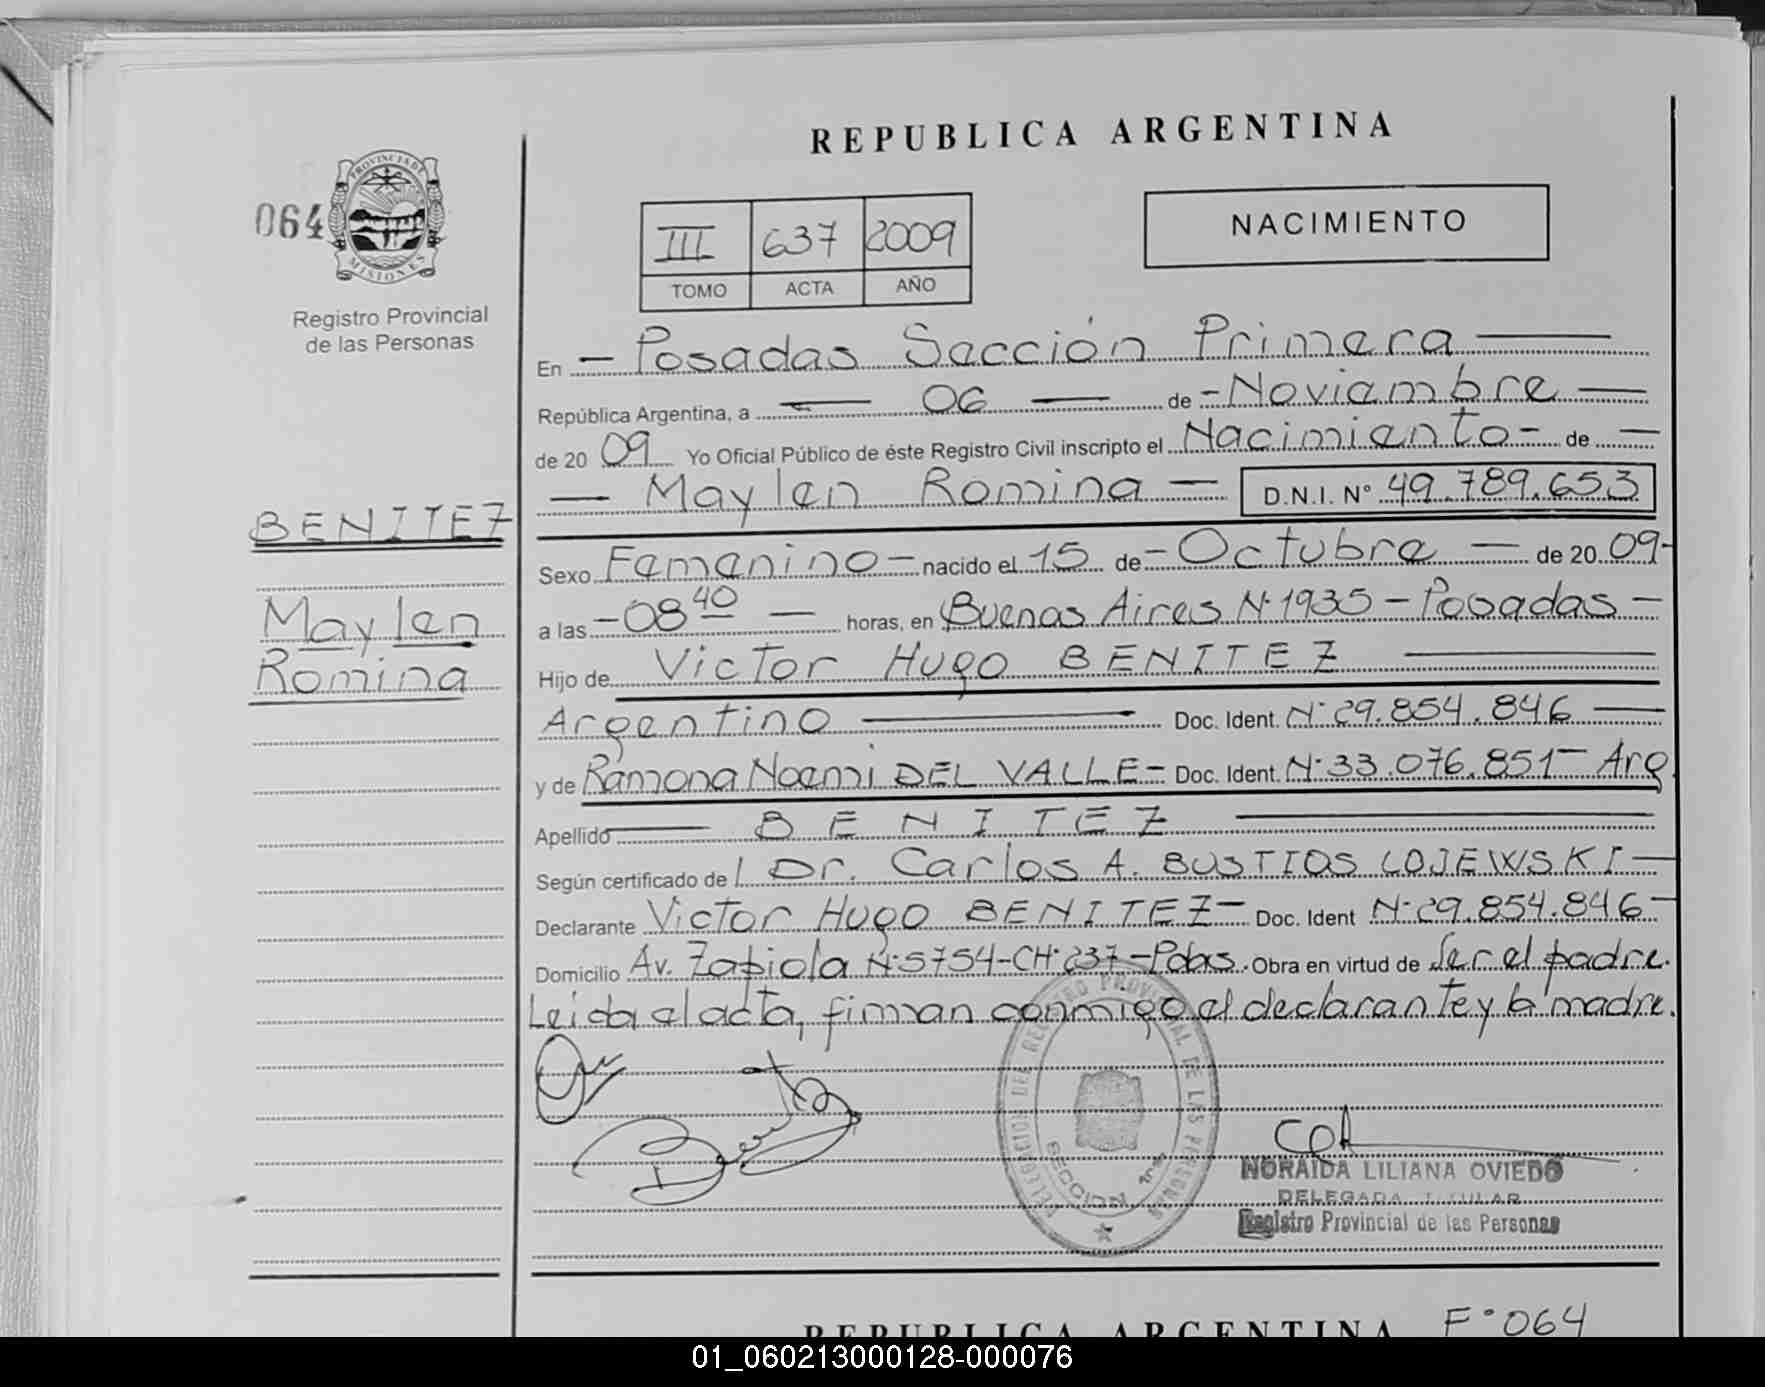 REPUBLICA ARGENTINA
064
PROVINCIA DE
MISIONES
Registro Provincial
de las Personas
III 637 2009
TOMO ACTA AÑO
NACIMIENTO
En — Posadas Sección Primera —
República Argentina, a — 06 — de - Noviembre —
de 20 09 Yo Oficial Público de éste Registro Civil inscripto el Nacimiento - de —
— Maylen Romina — D.N.I. Nº 49.789.653
BENITEZ
Maylen
Romina
Sexo Femenino - nacido el 15 de - Octubre — de 20 09-
a las - 08 40 — horas, en Buenos Aires Nº 1935 - Posadas -
Hijo de Victor Hugo BENITEZ —
Argentino — Doc. Ident. Nº 29.854.846 —
y de Ramona Noemi DEL VALLE - Doc. Ident. Nº 33.076.851 - Arg.
Apellido — BENITEZ —
Según certificado de Dr. Carlos A. BUSTIOS LOJEWSKI —
Declarante Victor Hugo BENITEZ - Doc. Ident Nº 29.854.846 -
Domicilio Av. Zapiola Nº 5754-CHº 237-Pdas. Obra en virtud de Ser el padre.
Leida el acta, firman conmigo el declarante y la madre.
DELEGACION DEL REGISTRO PROVINCIAL DE LAS PERSONAS
SECCION 1ra
NORAIDA LILIANA OVIEDO
DELEGADA TITULAR
Registro Provincial de las Personas
REPUBLICA ARGENTINA Fº 064
01_060213000128-000076